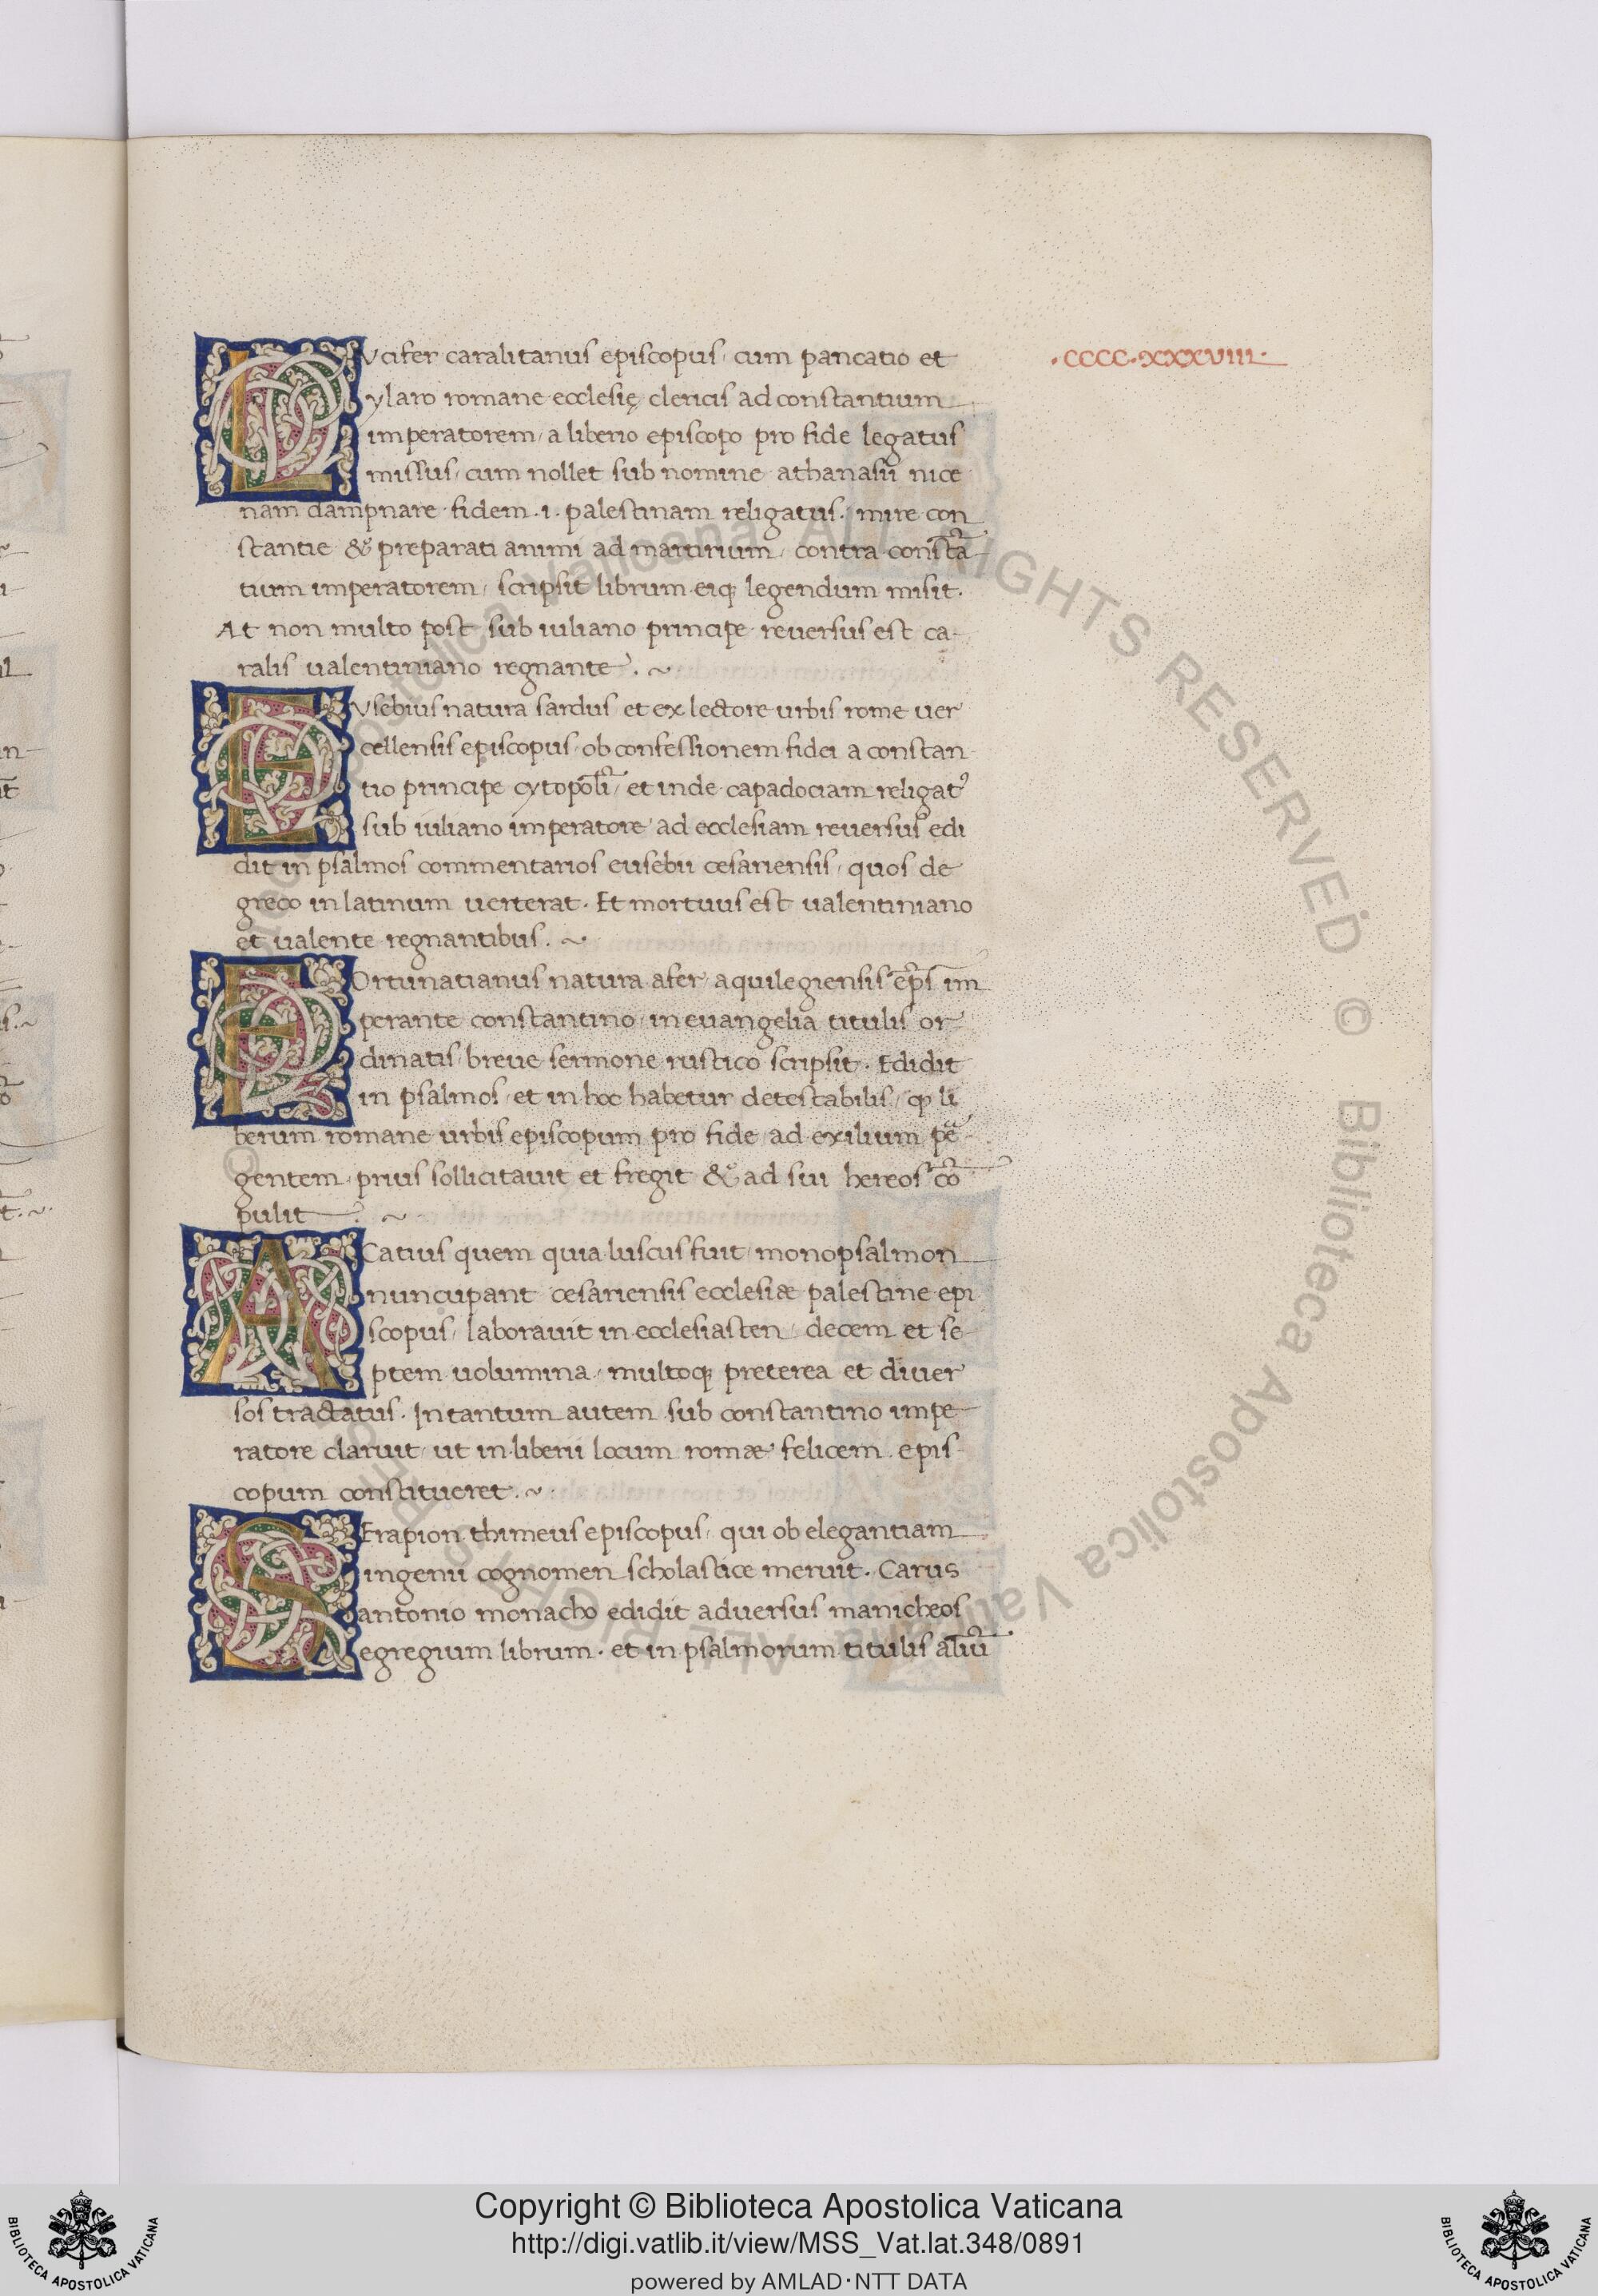 LVcifer caralitanus episcopus, cum pancatio et
ylaro romane ecclesię clericis ad constantium
imperatorem, a liberio episcopo pro fide legatus
missus, cum nollet sub nomine athanasii nice
nam dampnare fidem .i. palestinam religatus, mire con
stantie & preparati animi ad martirium, contra constã
tium imperatorem, scripsit librum eiq; legendum misit.
At non multo post sub iuliano principe reuersus est ca-
ralis ualentiniano regnante. ~
EVsebius natura sardus et ex lectore urbis rome uer
cellensis episcopus, ob confessionem fidei a constan
tio principe cytopolĩ, et inde capadociam religatꝰ
sub iuliano imperatore ad ecclesiam reuersus edi
dit in psalmos commentarios eusebii cesariensis, quos de
greco in latinum uerterat. Et mortuus est ualentiniano
et ualente regnantibus. ~
FOrtunatianus natura afer, aquilegiensis ep̃s im
perante constantino, in euangelia titulis or
dinatis, breue sermone rustico scripsit. Edidit
in psalmos, et in hoc habetur detestabilis, qp li
berum romane urbis episcopum pro fide ad exilium pẽ
gentem, prius sollicitauit et fregit & ad sui hereos cõ
pulit. ~
ACatius quem quia luscus fuit, monopsalmon
nuncupant cesariensis ecclesiæ palestine epi
scopus, laborauit in ecclesiasten, decem et se-
ptem uolumina, multoq; preterea et diuer
sos tractatus. In tantum autem sub constantino impe
ratore claruit, ut in liberii locum romæ felicem epis-
copum constitueret. ~
SErapion thimeus episcopus, qui ob elegantiam
ingenii cognomen scholastice meruit. Carus
antonio monacho edidit aduersus manicheos
egregium librum. et in psalmorum titulis aliũ
.CCCC.XXXVIII.
© Biblioteca Apostolica Vaticana ALL RIGHTS RESERVED © Biblioteca Apostolica Vaticana ALL RIGHTS RESERVED
Copyright © Biblioteca Apostolica Vaticana
http://digi.vatlib.it/view/MSS_Vat.lat.348/0891
powered by AMLAD·NTT DATA
BIBLIOTECA APOSTOLICA VATICANA
BIBLIOTECA APOSTOLICA VATICANA